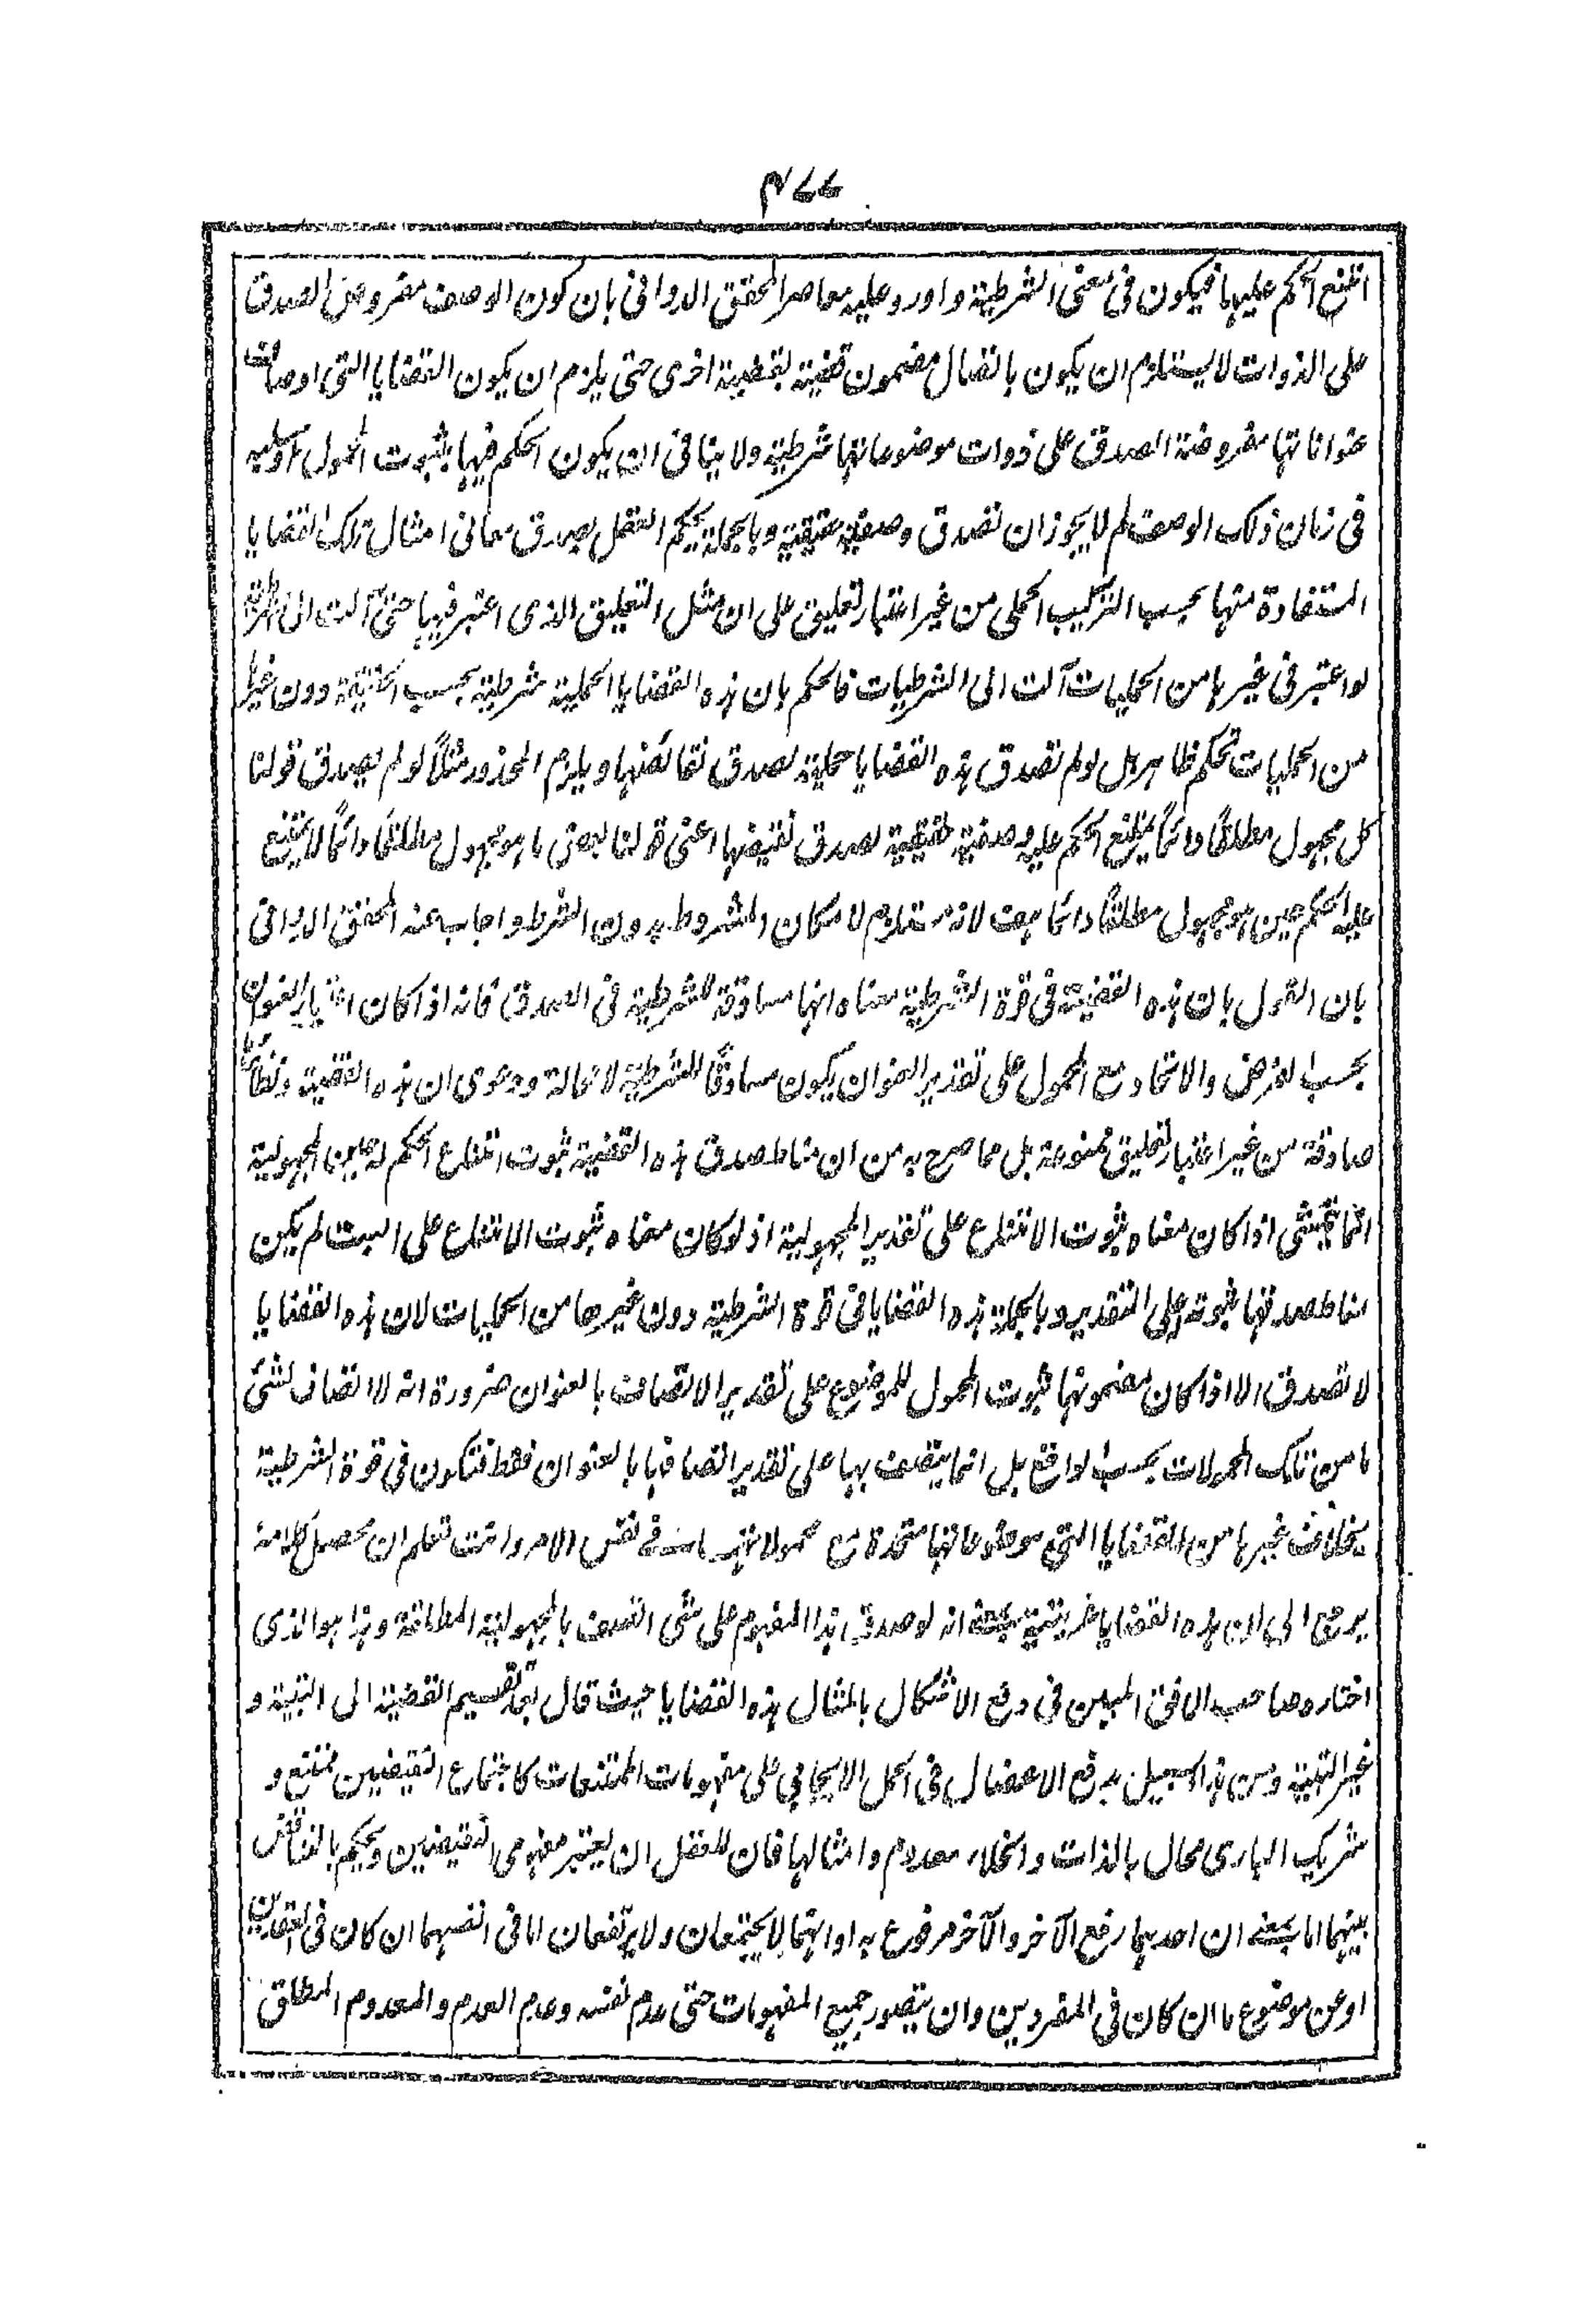 ٤٧٧
امتنع الحكم عليها فيكون فى معنى الشرطية واورد عليه معاصر المحقق الدوانى بان كون الوصف مفروض الصدق
على الذوات لا يستلزم ان يكون باتصال مضمون قضية بقضية اخرى حتى يلزم ان يكون القضايا التى اوصاف
عنواناتها مفروضة الصدق على ذوات موضوعاتها شرطية ولا ينافى ان يكون الحكم فيها بثبوت المحمول او سلبه
فى زمان ذلك الوصف لم لا يجوز ان تصدق وصفية حقيقية وبالجملة يحكم العقل بصدق معانى امثال تلك القضايا
المستفادة منها بحسب التركيب الحملى من غير اعتبار تعليق على ان مثل التعليق الذى اعتبر فيها حتى آلت الى الشرطية
لو اعتبر فى غيرها من الحمليات آلت الى الشرطيات فالحكم بان هذه القضايا الحملية شرطية بحسب الحقيقة دون غيرها
من الحمليات تحكم ظاهر بل لو لم تصدق هذه القضايا حملية لصدق نقائضها ويلزم المحذور مثلاً لو لم يصدق قولنا
كل مجهول مطلقاً دائماً يمتنع الحكم عليه وصفية حقيقية لصدق نقيضها اعنى قولنا بعض ما هو مجهول مطلقا دائماً لا يمتنع
عليه الحكم حين هو مجهول مطلقاً دائما هف لانه مستلزم لامكان المشروط بدون الشرط واجاب عنه المحقق الدوانى
بان القول بان هذه القضية فى قوة الشرطية معناه انها مساوقة للشرطية فى الصدق فانه اذا كان اعتبار العنوان
بحسب الفرض والاتحاد مع المحمول على تقدير العنوان يكون مساوقاً للشرطية لا محالة ودعوى ان هذه القضية ونظائرها
صادقة من غير اعتبار تعليق ممنوعة بل مما صرح به من ان مناط صدق هذه القضية ثبوت امتناع الحكم له حين المجهولية
انما يتمشى اذا كان معناه ثبوت الامتناع على تقدير المجهولية اذ لو كان معناه ثبوت الامتناع على البت لم يكن
مناط صدقها ثبوته على التقدير وبالجملة هذه القضايا فى قوة الشرطية دون غيرها من الحمليات لان هذه القضايا
لا تصدق الا اذا كان مضمونها ثبوت المحمول للموضوع على تقدير الاتصاف بالعنوان ضرورة انه لا اتصاف لشئ
ما من تلك المحمولات بحسب الواقع بل انما يتصف بها على تقدير اتصافها بالعنوان فقط فتكون فى قوة الشرطية
بخلاف غيرها من القضايا التى موضوعاتها متحدة مع محمولاتها فى نفس الامر وانت تعلم ان محصل كلامه
يرجع الى ان هذه القضايا غير بتية بمعنى انه لو صدق هذا المفهوم على شئ اتصف بالمجهولية المطلقة وهذا هو الذى
اختاره صاحب الافق المبين فى دفع الاشكال بامثال هذه القضايا حيث قال بعد تقسيم القضية الى البتية و
غير البتية ومن هذا السبيل يدفع الاعضال فى الحمل الايجابى على مفهومات الممتنعات كاجتماع النقيضين ممتنع و
شريك البارى محال بالذات والخلاء معدوم وامثالها فان للعقل ان يعتبر مفهومى النقيضين ويحكم بالتناقض
بينهما اما بمعنى ان احدهما رفع الآخر والآخر مرفوع به او انهما لا يجتمعان ولا يرتفعان اما فى انفسهما ان كان فى العقدين
او عن موضوع ما ان كان فى المفردين وان يتصور جميع المفهومات حتى عدم نفسه وعدم العدم والمعدوم المطلق